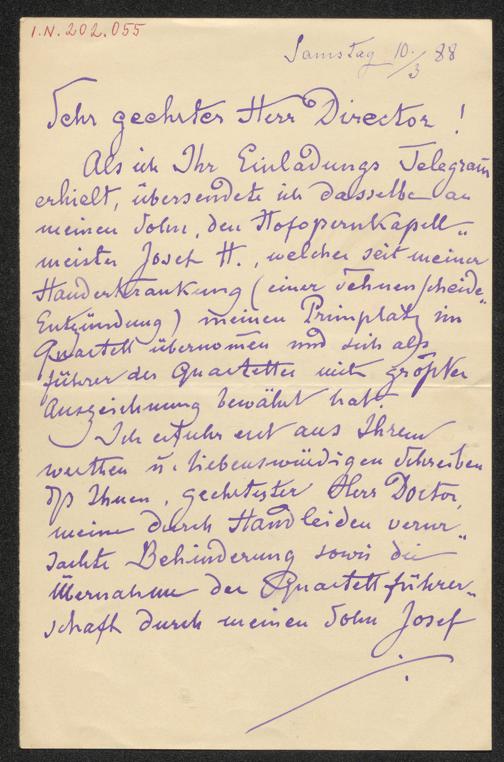 I.N. 202.055
Samstag 10./3 88
Sehr geehrter Herr Director !
Als ich Ihr Einladungs Telegram
erhielt, übersendete ich dasselbe an
meinen Sohn, den Hofopernkapell„
meister Josef H., welcher seit meiner
Handerkrankung (einer Sehnenscheide„
Entzündung) meinen Primplatz im
Quartett übernomen und sich als
führer des Quartettes mit größter
Auszeichnung bewährt hat.
Ich erfuhr erst aus Ihrem
werthen u. liebenswürdigen Schreiben
dß Ihnen, geehrtester Herr Doctor,
meine durch Handleiden verur„
sachte Behinderung sowie die
Übernahme der Quartettführer„
schaft durch meinen Sohn Josef